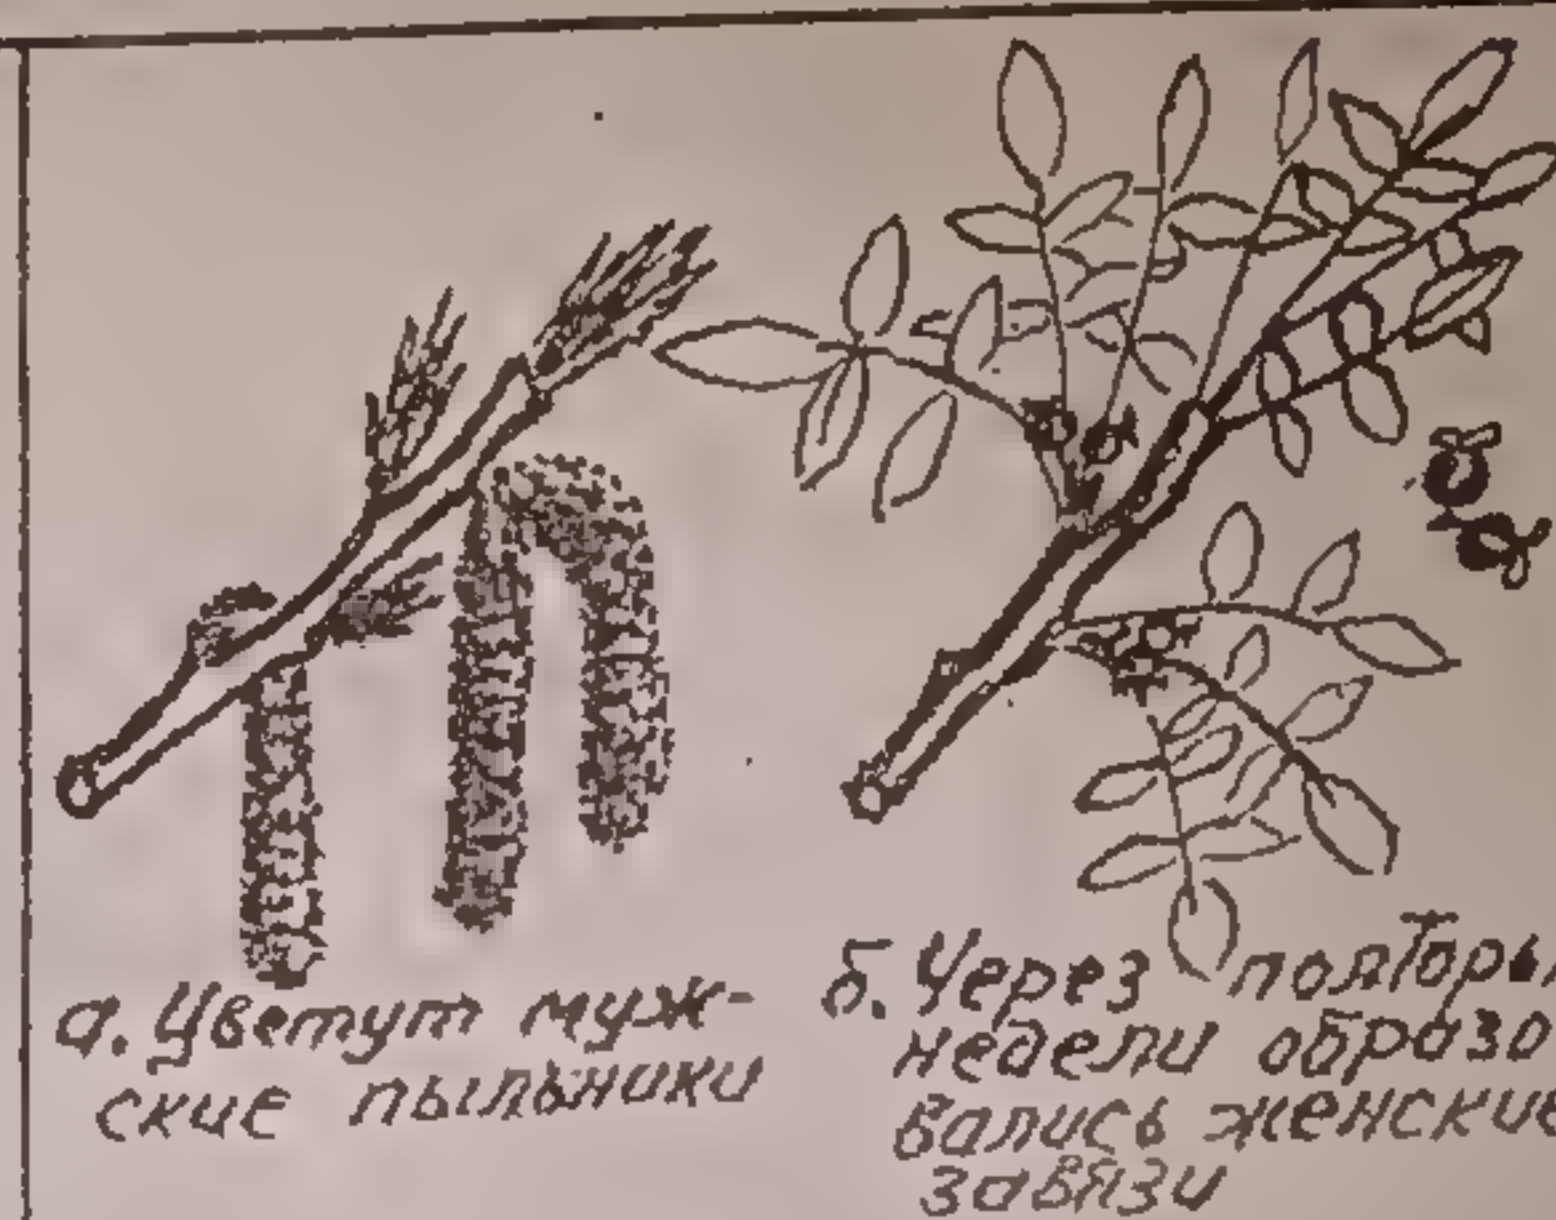 а. Цветут муж-
ские пыльники
б. Через полторы
недели образо
вались женские
завязи